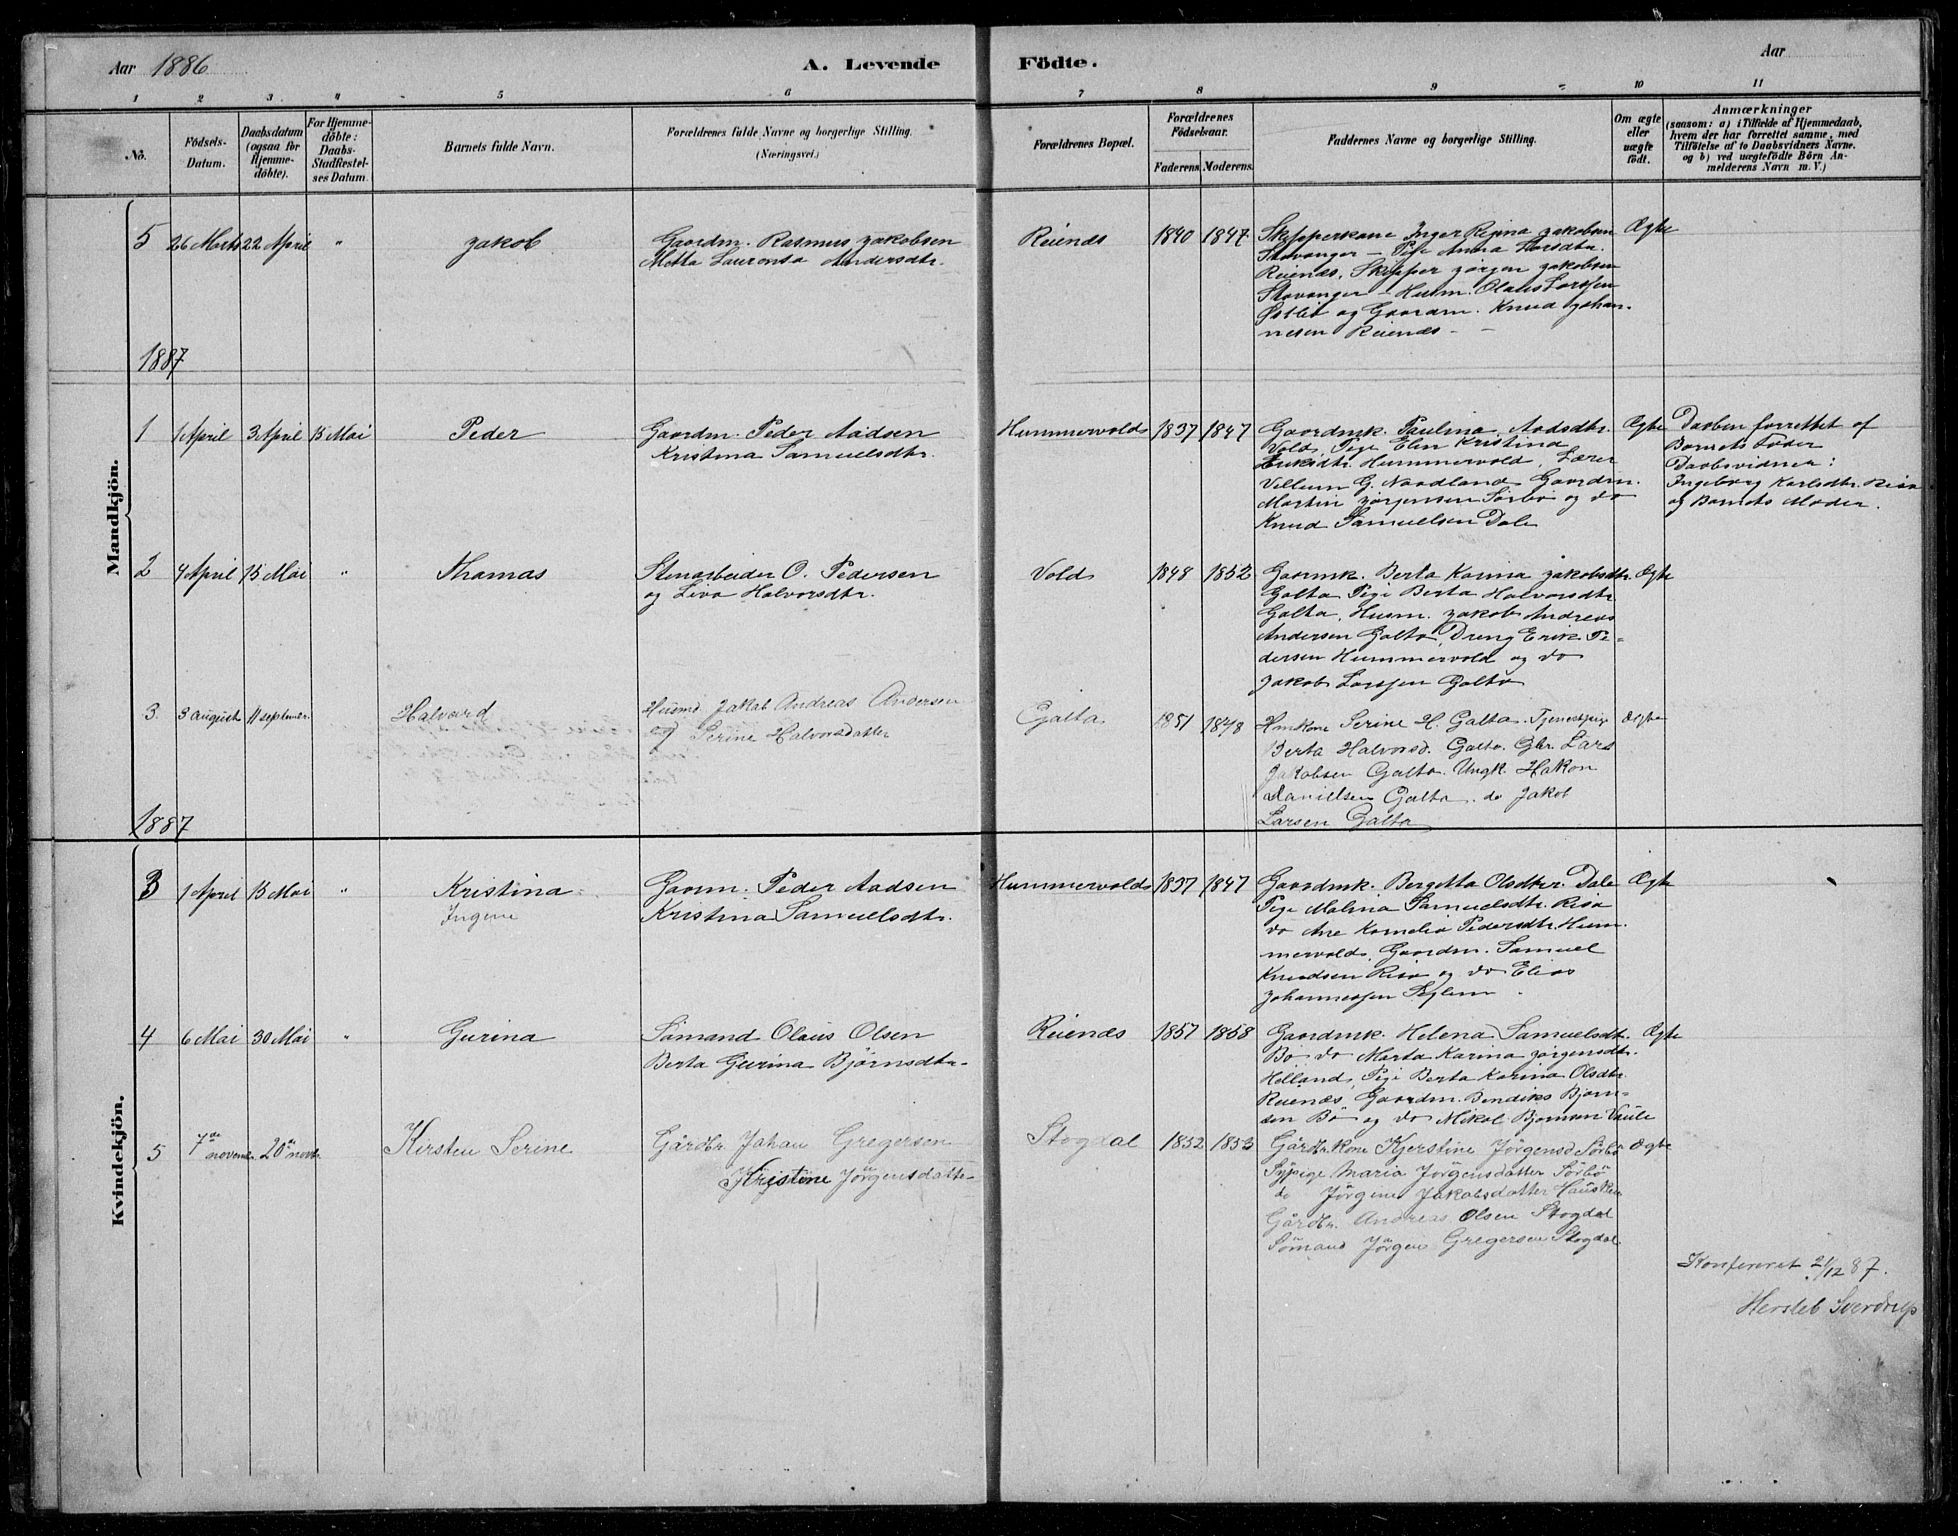 Aar 1886
A. Levende Födte.
Aar
1 2 3 4 5 6 7 8 9 10 11
No.
Födsels-Datum.
Daabsdatum (ogsaa for Hjemme-döbte).
For Hjemme-döbte: Daabs-Stadfæstel-ses Datum.
Barnets fulde Navn.
Forældrenes fulde Navne og borgerlige Stilling.
(Næringsvei.)
Forældrenes Bopæl.
Forældrenes Födselsaar.
Faderens. Moderens.
Faddernes Navne og borgerlige Stilling.
Om ægte eller uægte födt.
Anmærkninger
(saasom: a) i Tilfælde af Hjemmedaab,
hvem der har forrettet samme, med
Tilföielse af to Daabsvidners Navne.
og b) ved uægtefödte Börn An-
melderens Navn m. V.)
Mandkjön.
5 26 Marts 22 April " Jakob
Gaardm. Rasmus Jakobsen
Metta Laurentsa Andersdtr.
Reienæs 1840 1847
Skipperkone Inger Regina Jakobsen
Stavanger – Pige Anna Larsdtr.
Reienæs, Skipper Jörgen Jakobsen
Stavanger – Husm. Olaus Larssen
Østbö og Gaardm. Knud Johan-
nesen Reienæs –
Ægte
1887
1 1 April 3 April 15 Mai Peder
Gaardm. Peder Aadsen
Kristina Samuelsdtr.
Hummervold 1837 1847
Gaardmk. Paulina Aadsdtr.
Vold, Pige Elen Kristina
Eriksdtr. Hummervold, Lærer
Villum G. Nordland Gaardm.
Martin Jörgensen Sörbö og do
Knud Samuelsen Dale
Ægte
Daaben forrettet af
Barnets Fader
Daabsvidner:
Ingeborg Karlsdtr. Risa
og Barnets Moder.
2 4 April 15 Mai " Thomas
Stenarbeider O. Pedersen
og Liva Halvorsdtr.
Vold 1848 1852
Gaarmk. Berta Karina Jakobsdtr.
Galta Pige Berta Halvorsdtr
Galta, Husm. Jakob Andreas
Andersen Galta, Dreng Erik Pe-
dersen Hummervold og do
Jakob Larssen Galta
Ægte
3. 3 august 11 septemr. Halvard
Husmd. Jakob Andreas Andersen
og Serine Halvorsdatter
Galta 1851 1848
Hmkone Serine H. Galta. Tjenestpige
Berta Halvorsd. Galta. Gbr. Lars
Jakobsen Galta. Ungk. Hakon
Danielsen Galta. do Jakob
Larsen Galta
Ægte
1887
Kvindekjön.
3 1 April 15 Mai " Kristina
Ingene
Gaarm. Peder Aadsen
Kristina Samuelsdtr.
Hummervold 1837 1847
Gaardmk. Bergetta Olsdtr. Dale
Pige Malina Samuelsdtr. Risa
do Ane Kornelia Pedersdtr. Hum
mervold, Gaardm. Samuel
Knudsen Risa og do Elias
Johannessen Seglem.
Ægte
4 6 Mai 30 Mai " Gurina
Sömand Olaus Olsen
Berta Gurina Björnsdtr.
Reienæs 1857 1858
Gaardmk. Helena Samuelsdtr.
Bö do Marta Karina Jörgensdtr.
Helland, Pige Berta Karina Olsdtr.
Reienæs Gaardm. Bendiks Bjørn-
sen Bö og do Mikal Bjørnsen Vaule
Ægte
5 7de novembr. 20de novbr. Kirsten Serine
Gårdbr. Johan Gregersen
Kristine Jörgensdatter
Stogdal 1852 1853
Gårdbrkone Kjerstine Jörgensd Sörbö
Sypige Maria Jörgensdatter Sörbö
do Jörgine Jakobsdatter Hausken
Gårdbr. Andreas Olsen Stogdal
Sömand Jörgen Gregersen Stogdal
Ægte
Konfereret 21/12 87.
Hersleb Sverdrup